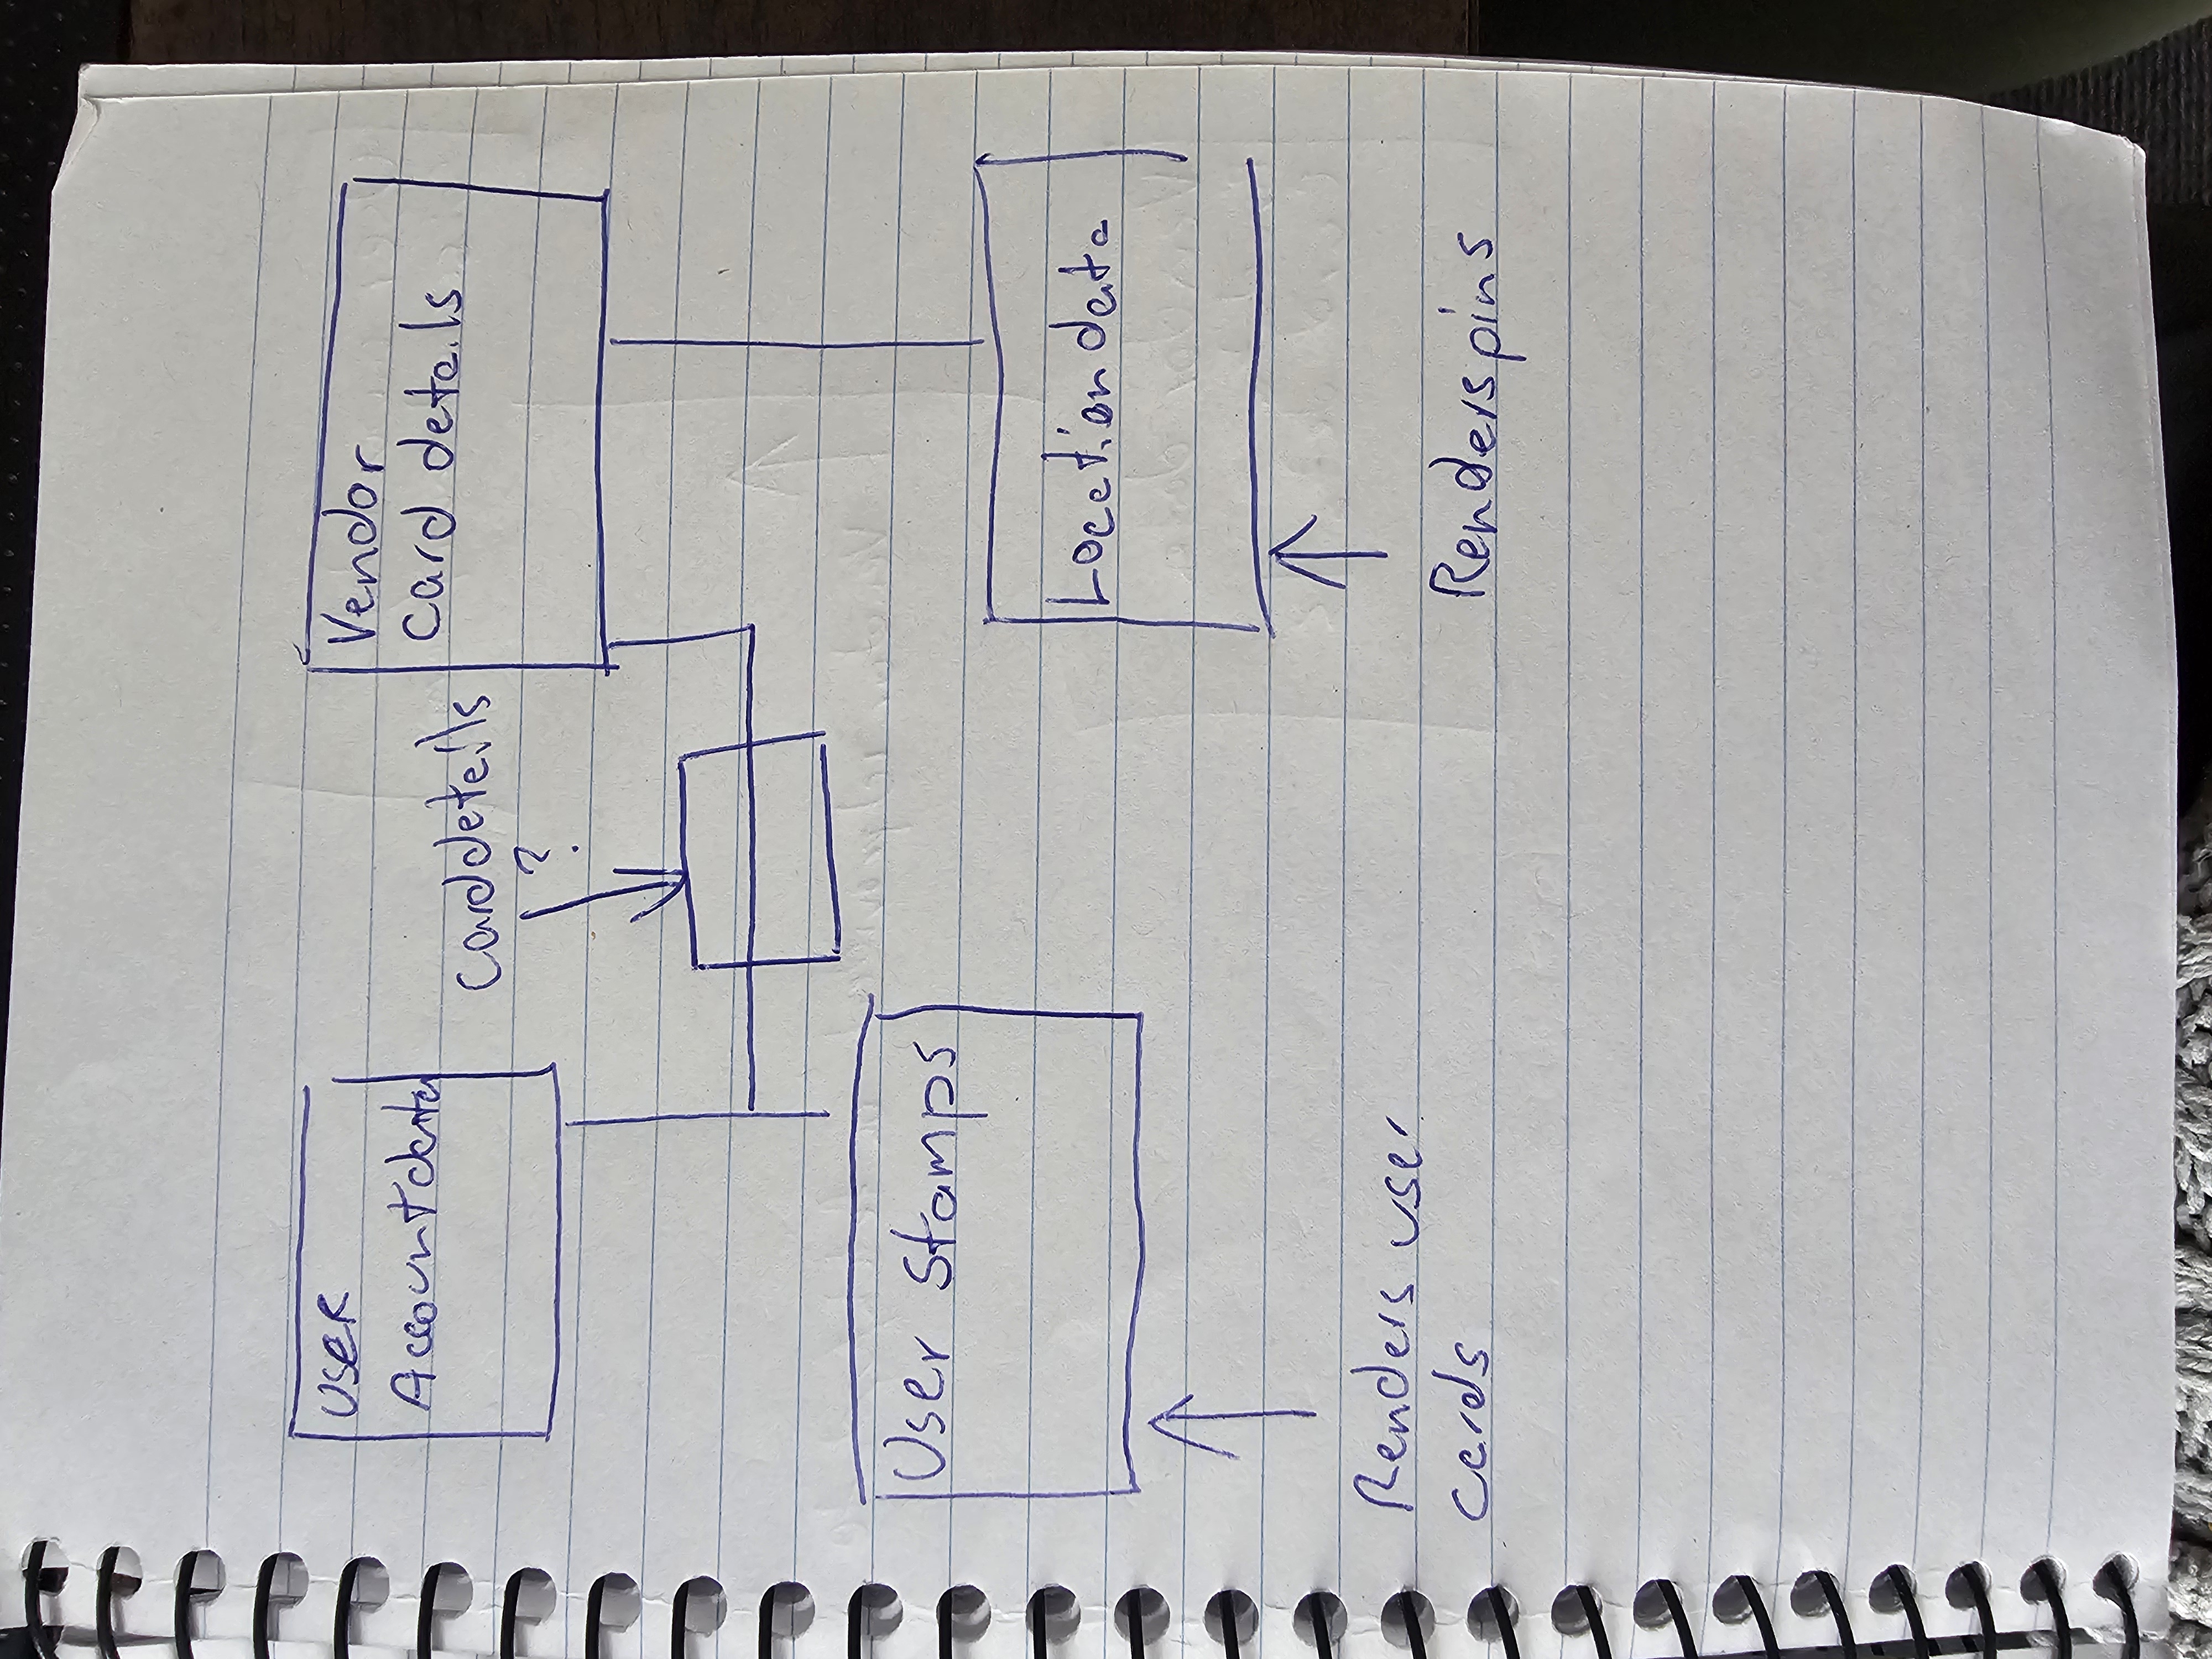 User
Accountdata
Vendor
Card details
Carddeteils
?
User stamps
Locationdata
Renders user
cards
Renders pins